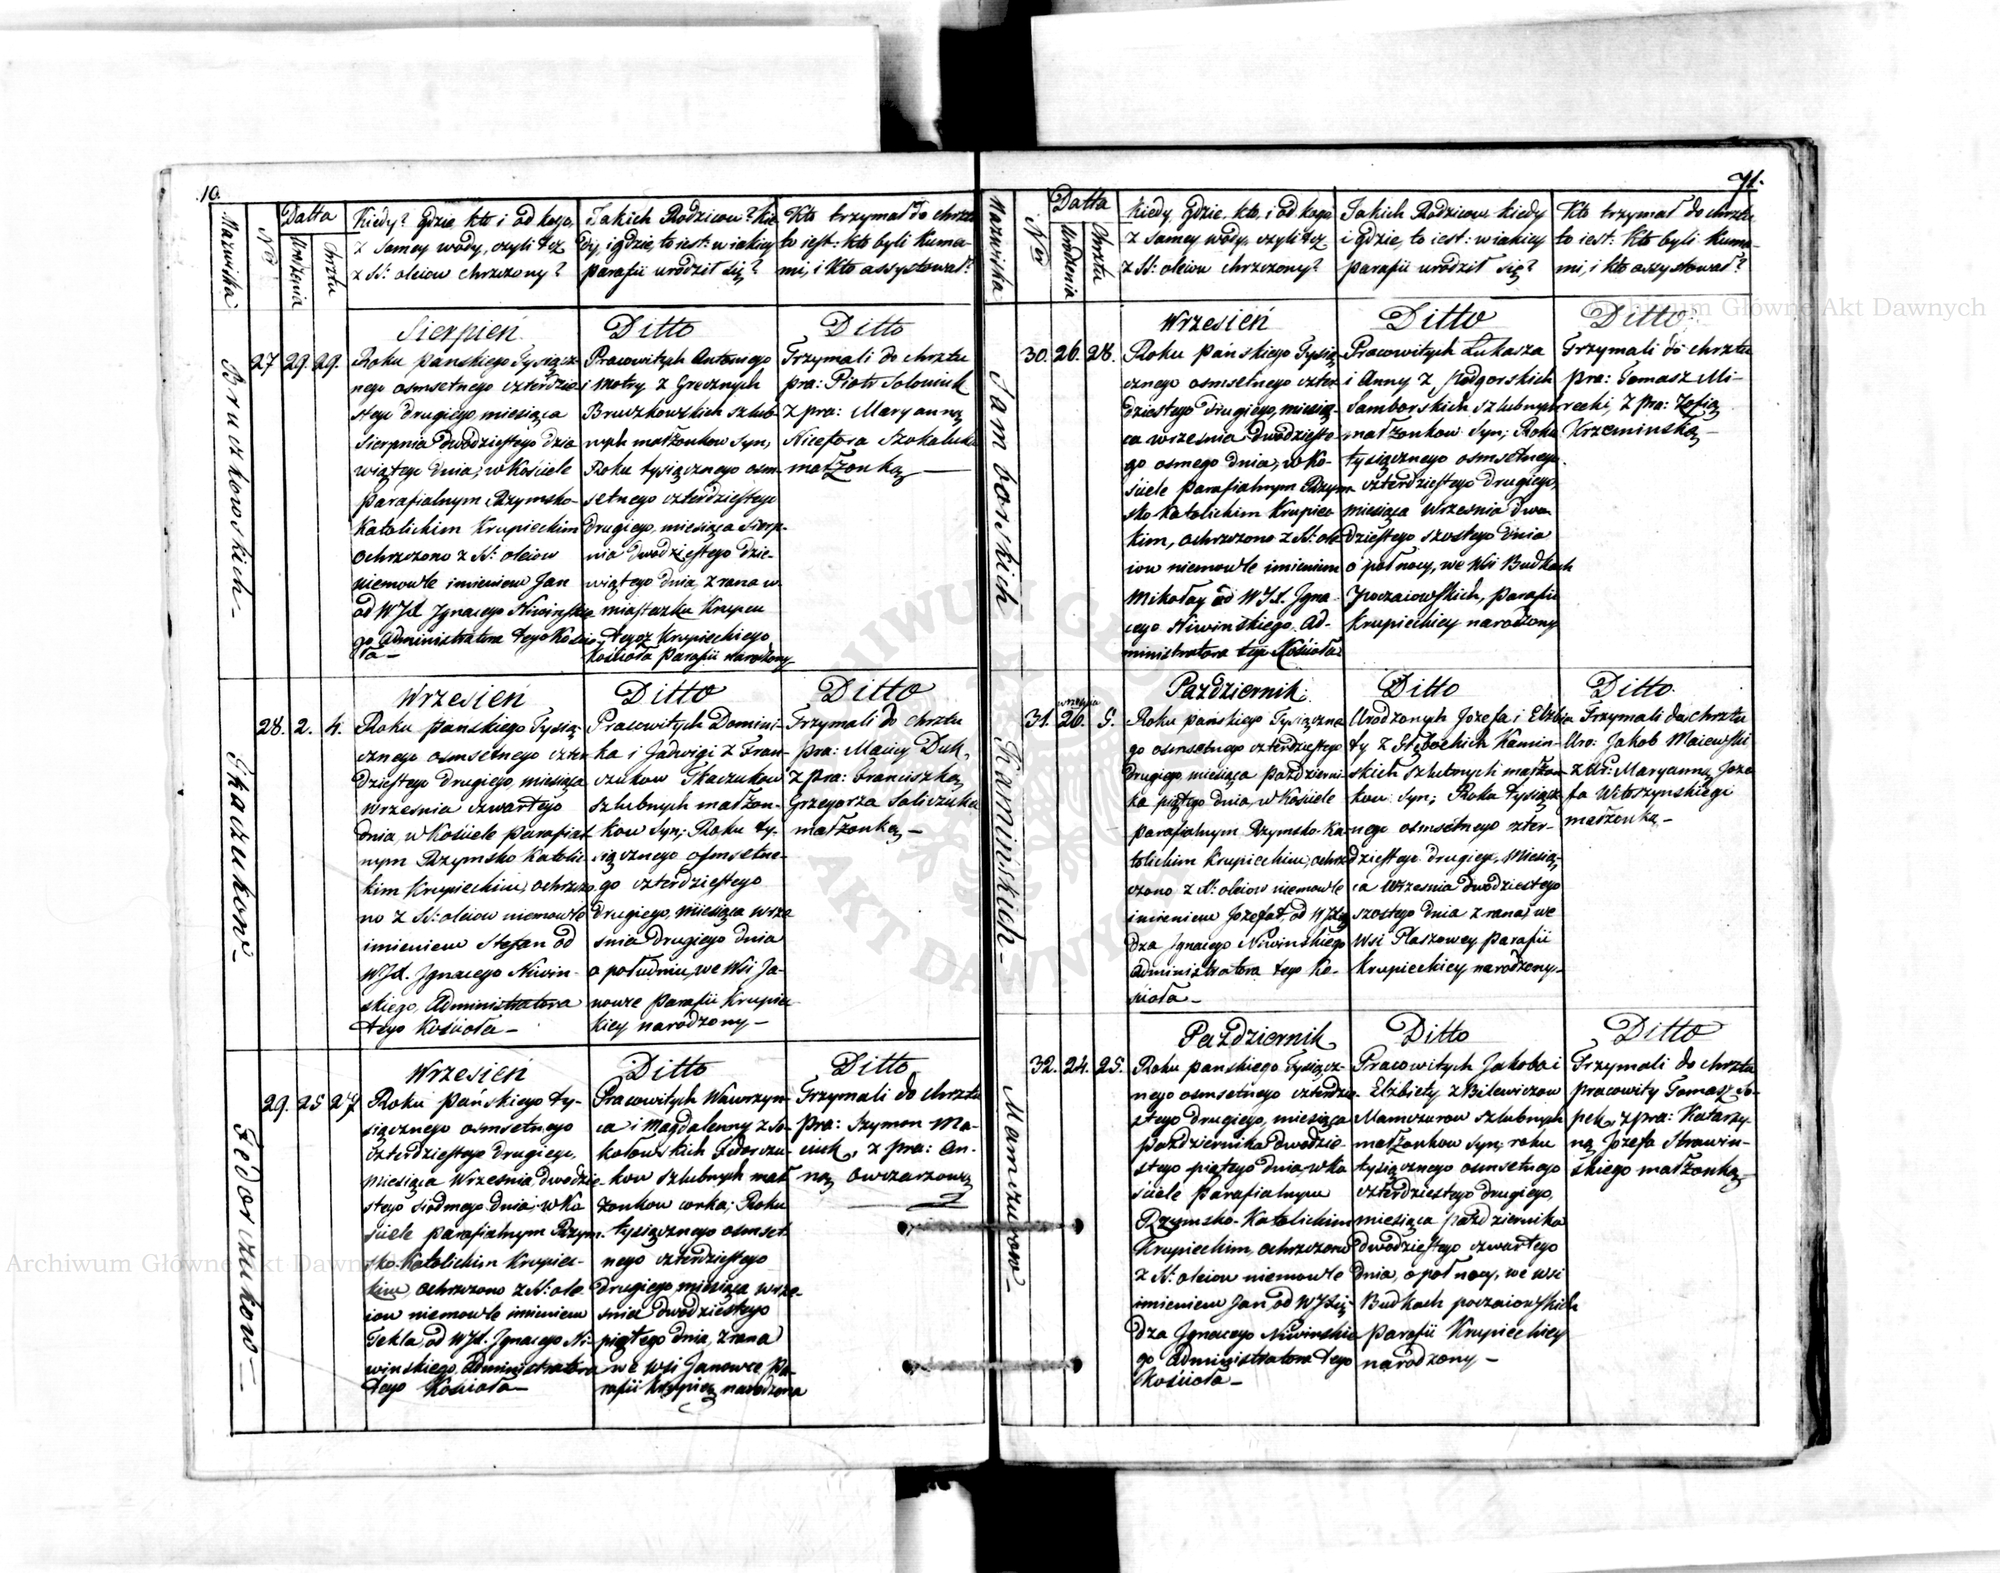 10.
Nazwiska
Nro
Datta
Urodzenia
Chrztu
Kiedy? gdzie, kto i od kogo,
z samey wody, czyli też
z SS: oleiow chrzczony?
Jakich Rodzicow? kie-
dy, i gdzie, to iest: w iakiey
parafii urodził się?
Kto trzymał do chrztu
to iest: kto byli Kuma-
mi, i kto assystował?
Bruczkowskich
27
29.
29.
Sierpień
Roku Pańskiego Tysiącz-
nego osmsetnego czterdzie-
stego drugiego, miesiąca
Sierpnia dwódziestego dzie
wiątego dnia, w Kościele
Parafialnym Rzymsko-
Katolickim Krupieckim
ochrzczono z SS: oleiow
niemowle imieniem Jan
od WJX. Jgnacego Niwinskie
go Administratora tego Koscio-
ła
Ditto
Pracowitych Antoniego
i Motry z Grecznych
Bruczkowskich szlub-
nych małżonkow syn;
Roku tysiącznego osm-
setnego czterdziestego
drugiego, miesiąca Sierp-
nia dwódziestego dzie-
wiątego dnia, z rana w
miasteczku Krupcu
tegoż Krupieckiego
Kościoła Parafii narodzony
Ditto
Trzymali do chrztu
pra: Piotr Soloniuk
z pra: Maryanną
Nicefora Szokaluka
małżonką
Tkaczukow
28.
2.
4.
Wrzesień
Roku Pańskiego Tysią-
cznego osmsetnego czter
dziestego drugiego, miesiąca
Wrzesnia czwartego
dnia, w Kościele Parafial
nym Rzymsko Katolic-
kim Krupieckim, ochrzczo
no z SS: oleiow niemowle
imieniem Stefan od
WJX. Jgnacego Niwin-
skiego, Administratora
tego Kościoła
Ditto
Pracowitych Domini-
ka i Jadwigi z Fran-
czukow Tkaczukow
szlubnych małżon-
kow syn; Roku ty-
siącznego osmsetne-
go czterdziestego
drugiego, miesiąca Wrze
snia drugiego dnia
o południu, we Wsi Ja-
nowce Parafii Krupiec
kiey narodzony
Ditto
Trzymali do chrztu
pra: Maciey Duk,
z pra: Franciszką
Grzegorza Saliczuka
małżonką
Fedorczukow
29.
25
27
Wrzesień
Roku Pańskiego Ty-
siącznego osmsetnego
czterdziestego drugiego,
miesiąca Wrzesnia, dwodzie-
stego siódmego dnia, w Ko
ściele parafialnym Rzym-
sko-Katolickim Krupiec-
kim ochrzczono z SS: ole-
iow niemowle imieniem
Tekla, od WJX. Jgnacego Ni-
winskiego, Administratora
tego Kościoła
Ditto
Pracowitych Wawrzyn-
ca i Magdalenny z So-
kołowskich Fedorczu-
kow szlubnych mał-
żonkow corka; Roku
tysiącznego osmset-
nego czterdziestego
drugiego miesiąca wrze-
snia dwodziestego
piątego dnia, z rana
we wsi Janowce Pa-
rafii Krupiec narodzona
Ditto
Trzymali do chrztu
pra: Szymon Ma-
ciuk, z pra: An-
ną Owczarzową
71.
Nazwiska
Nro
Datta
Urodzenia
Chrztu
Kiedy, gdzie, kto, i od kogo
z samey wody, czyli też
z SS: oleiow chrzczony?
Jakich Rodzicow kiedy
i gdzie, to iest: w iakiey
parafii urodził się?
Kto trzymał do chrztu
to iest: Kto byli Kuma-
mi, i kto assystował?
Samborskich
30.
26.
28.
Wrzesień
Roku Pańskiego Tysią-
cznego osmsetnego czter
dziestego drugiego, miesią-
ca wrzesnia dwodziesto
go osmego dnia, w Ko-
ściele parafialnym Rzym
sko Katolickim Krupiec
kim, ochrzczono z SS: ole
iow niemowle imieniem
Mikołay od WJX. Jgna-
cego Niwinskiego Ad-
ministratora tego Kościoła
Ditto
Pracowitych Łukasza
i Anny z Podgorskich
Samborskich szlubnych
małżonkow Syn; Roku
tysiącznego osmsetnego
czterdziestego drugiego,
miesiąca Wrzesnia dwo-
dziestego szostego dnia
o połnocy, we Wsi Budkach
Poczaiowskich, parafii
Krupieckiey narodzony
Ditto
Trzymali do chrztu
pra: Tomasz Mi-
recki, z pra: Zofią
Krzeminską
Kaminskich
31.
wrzesnia
26.
5.
Październik
Roku Pańskiego Tysiączne
go osmsetnego czterdziestego
drugiego miesiąca Październi-
ka piątego dnia, w Kościele
parafialnym Rzymsko-Ka-
tolickim Krupieckim, ochrz
czono z SS: oleiow niemowle
imieniem Jozefat, od WJXię
dza Jgnacego Niwinskiego
Administratora tego Ko-
ścioła
Ditto
Urodzonych Jozefa i Elzbie
ty z Głębockich Kamin-
skich szlubnych małżon-
kow syn; Roku tysiącz
nego osmsetnego czter-
dziestego drugiego, Miesią-
ca Wrzesnia dwodziestego
szostego dnia z rana, we
Wsi Płaszowey, Parafii
Krupieckiey narodzony
Ditto
Trzymali do chrztu
Uro: Jakob Maiewski
z Ur: Maryanną Joze
fa Witoszynskiego
małżonką
Mamczurow
32.
24.
25.
Październik
Roku Pańskiego Tysiącz-
nego osmsetnego czterdzie-
stego drugiego, miesiąca
Października dwodzie-
stego piątego dnia, w Ko
ściele Parafialnym
Rzymsko-Katolickim
Krupieckim, ochrzczono
z SS: oleiow niemowle
imieniem Jan, od WJXię-
dza Jgnacego Niwinskie
go Administratora tego
Kościoła
Ditto
Pracowitych Jakoba i
Elżbiety z Bilewiczow
Mamczurow szlubnych
małżonkow syn; roku
tysiącznego osmsetnego
czterdziestego drugiego,
miesiąca października
dwodziestego czwartego
dnia, o pół nocy, we wsi
Budkach poczaiowskich
Parafii Krupieckiey
narodzony
Ditto
Trzymali do chrztu
pracowity Tomasz So-
pek, z pra: Katarzy-
ną Jozefa Strawin-
skiego małżonką
Archiwum Główne Akt Dawnych
Archiwum Główne Akt Dawnych